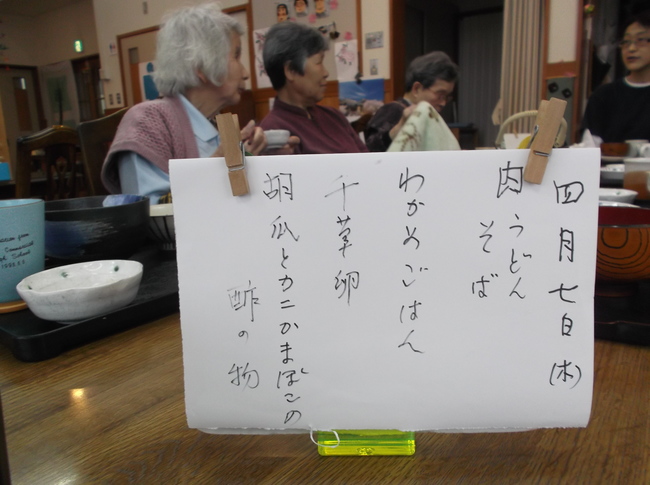 四月七日(木)
肉うどん
そば
わかめごはん
千草卵
胡瓜とカニかまぼこの
酢の物